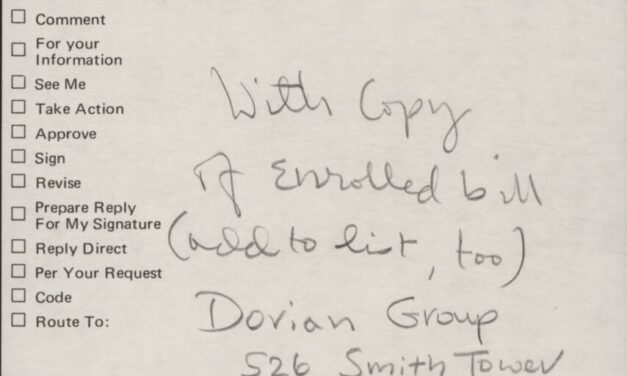 ☐ Comment
☐ For your
Information
☐ See Me
☐ Take Action
☐ Approve
☐ Sign
☐ Revise
☐ Prepare Reply
For My Signature
☐ Reply Direct
☐ Per Your Request
☐ Code
☐ Route To:
With Copy
of Enrolled bill
(add to list, too)
Dorian Group
526 Smith Tower